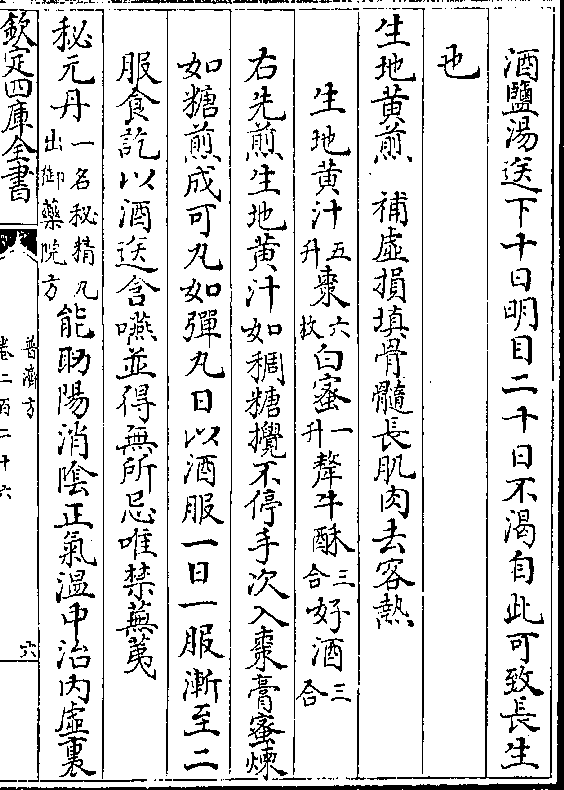 酒鹽湯送下十日明目二十日不渴自此可致長生
也
生地黄煎　補虛損填骨髓長肌肉去客熱
生地黄汁五升棗六枚白蜜一升犛牛酥三合好酒三合
右先煎生地黄汁如稠糖攪不停手次入棗膏蜜煉
如糖煎成可丸如彈丸日以酒服一日一服漸至二
服食訖以酒送含嚥並得無所忌唯禁蕪荑
秘元丹一名秘精丸出御藥院方能助陽消陰正氣温中治内虛裏
欽定四庫全書
普濟方
卷二百二十六
六